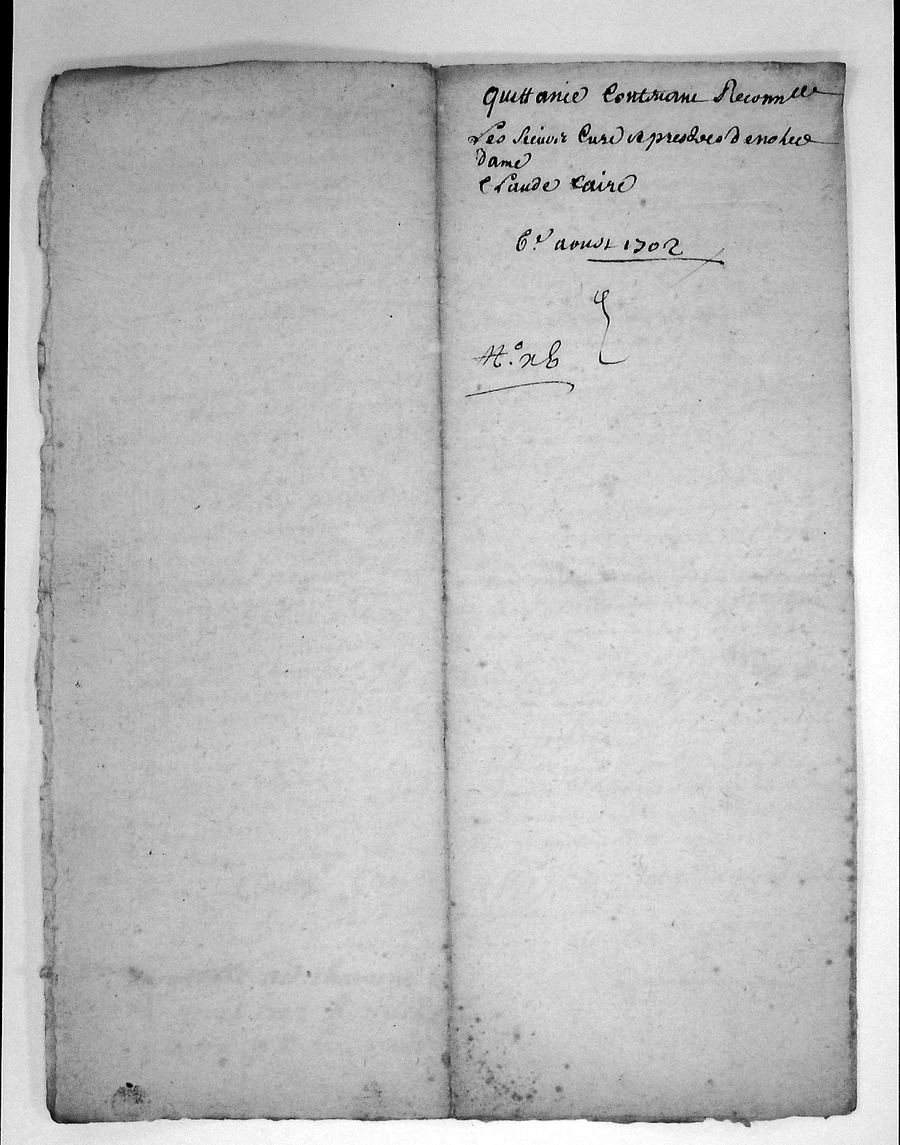 Quittance Contenant Reconn^lle
Les sieurs Curé et prestres de nostre
dame
Claude Caire
6^e aoust 1702